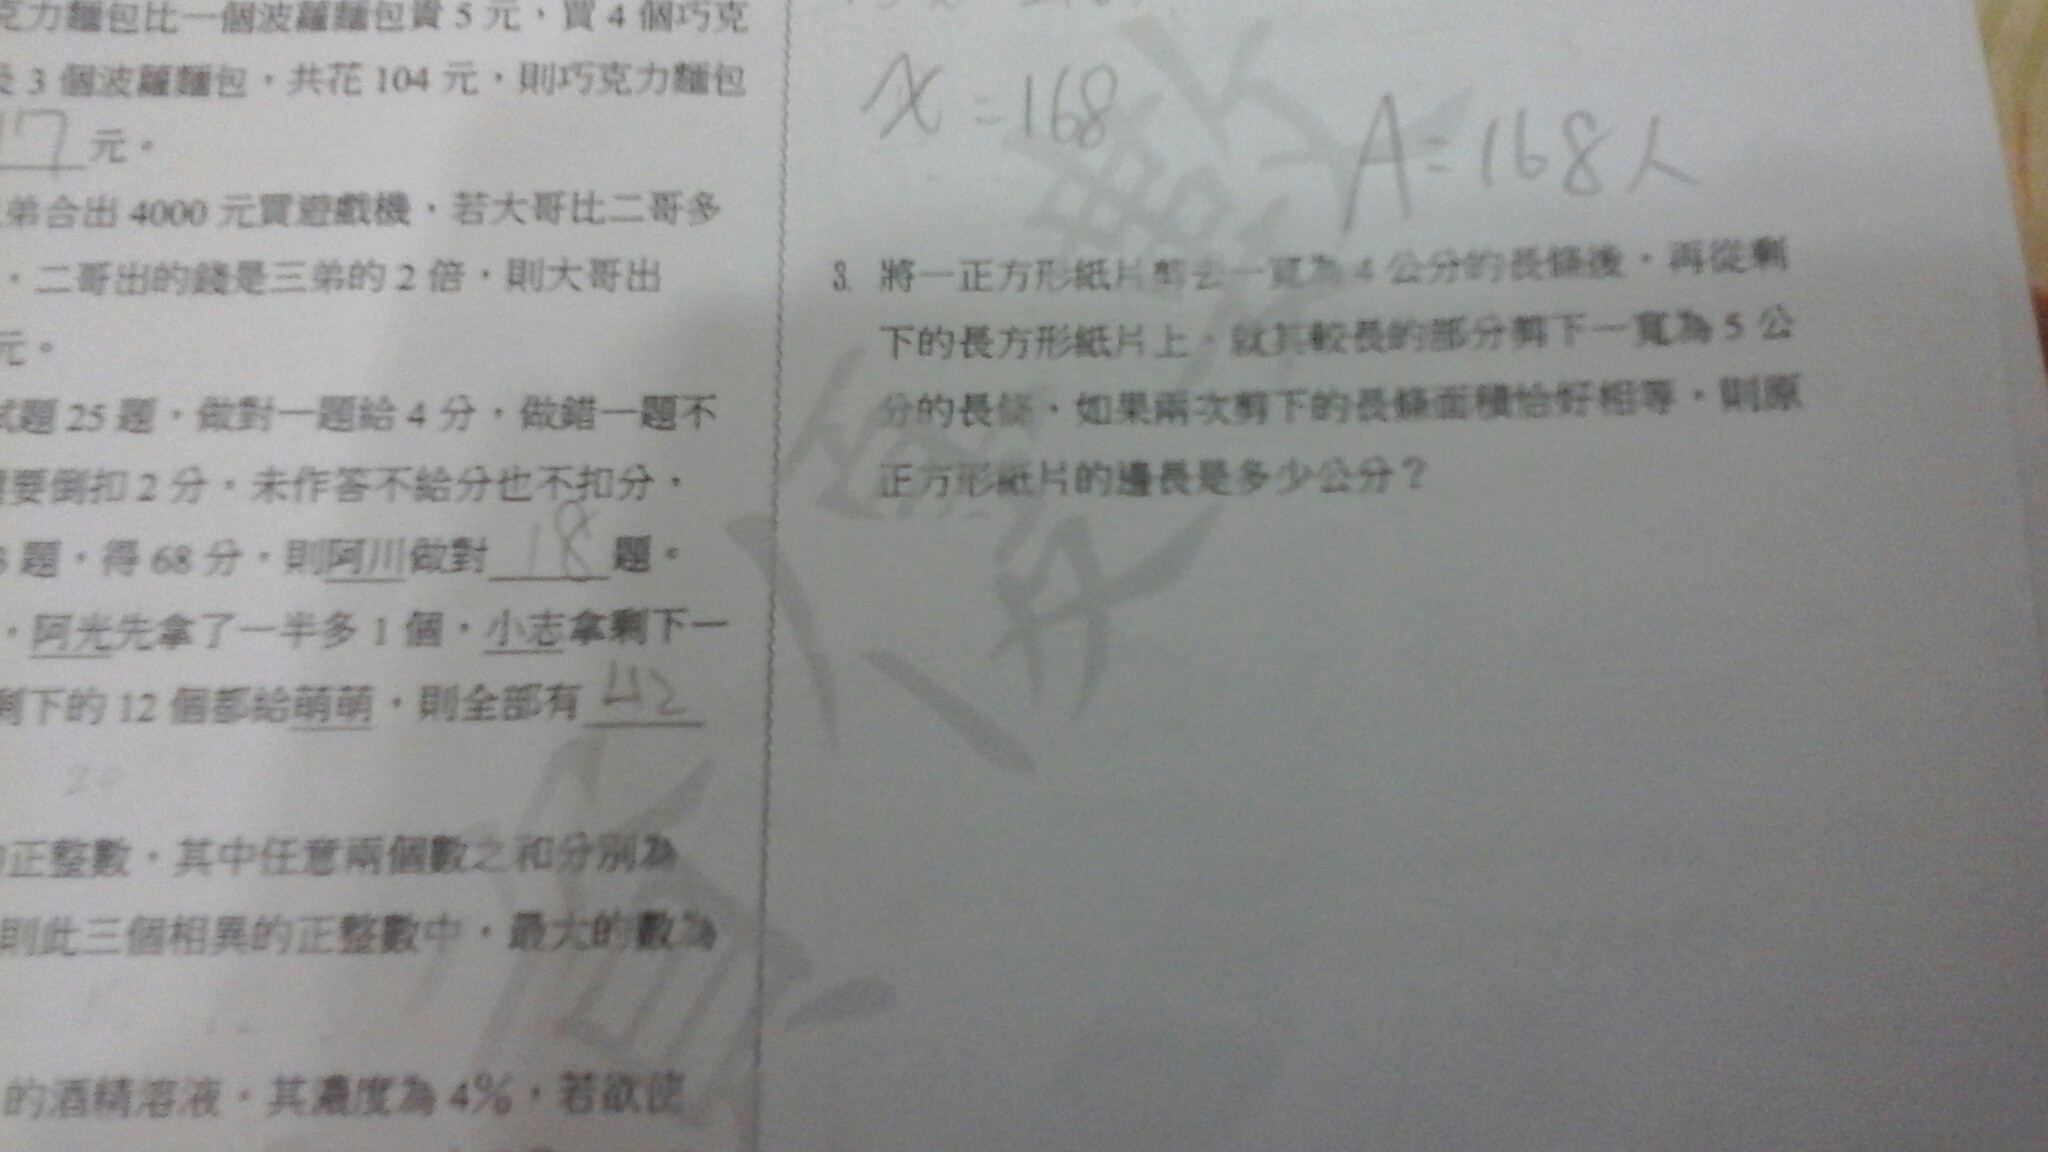 克力麵包比一個波蘿麵包貴 5 元，買 4 個巧克
3 個波蘿麵包，共花 104 元，則巧克力麵包
17 元。
弟合出 4000 元買遊戲機，若大哥比二哥多
，二哥出的錢是三弟的 2 倍，則大哥出
元。
試題 25 題，做對一題給 4 分，做錯一題不
要倒扣 2 分，未作答不給分也不扣分，
3 題，得 68 分，則阿川做對 18 題。
，阿光先拿了一半多 1 個，小志拿剩下一
剩下的 12 個都給萌萌，則全部有 42
20
的正整數，其中任意兩個數之和分別為
則此三個相異的正整數中，最大的數為
的酒精溶液，其濃度為 4%，若欲使
x = 168
A = 168人
3. 將一正方形紙片剪去一寬為 4 公分的長條後，再從剩
下的長方形紙片上，就其較長的部分剪下一寬為 5 公
分的長條，如果兩次剪下的長條面積恰好相等，則原
正方形紙片的邊長是多少公分？